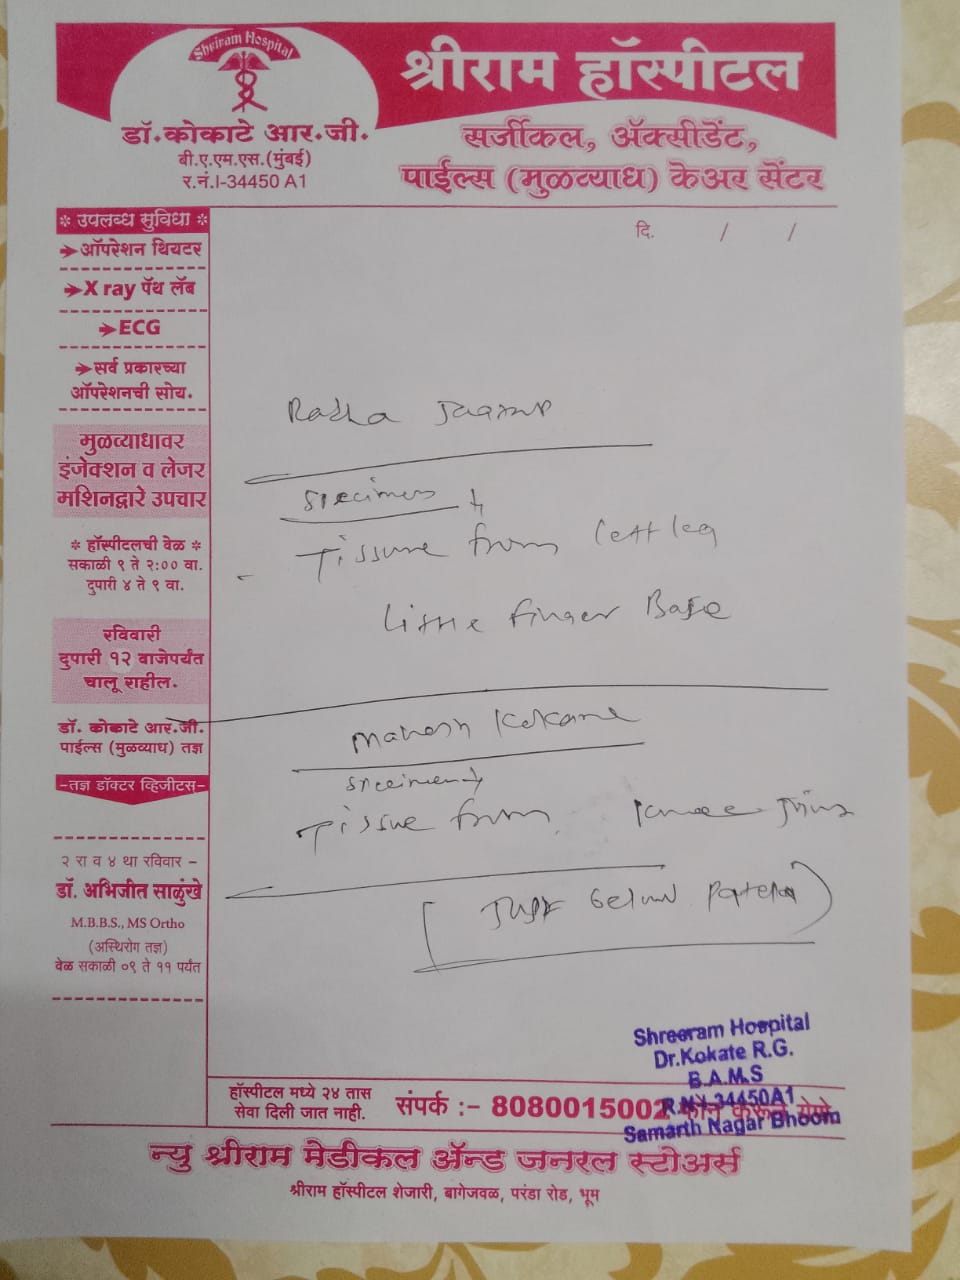 Shriram Hospital
श्रीराम हॉस्पीटल
डॉ. कोकाटे आर.जी.
बी.ए.एम.एस.(मुंबई)
र.नं.I-34450 A1
सर्जीकल, ॲक्सीडेंट,
पाईल्स (मुळव्याध) केअर सेंटर
दि. / /
* उपलब्ध सुविधा *
ऑपरेशन थियटर
X ray पॅथ लॅब
ECG
सर्व प्रकारच्या
ऑपरेशनची सोय.
मुळव्याधावर
इंजेक्शन व लेजर
मशिनद्वारे उपचार
* हॉस्पीटलची वेळ *
सकाळी ९ ते २:०० वा.
दुपारी ४ ते ९ वा.
रविवारी
दुपारी १२ वाजेपर्यंत
चालू राहील.
डॉ. कोकाटे आर.जी.
पाईल्स (मुळव्याध) तज्ञ
-तज्ञ डॉक्टर व्हिजीटस-
२ रा व ४ था रविवार -
डॉ. अभिजीत साळुंखे
M.B.B.S., MS Ortho
(अस्थिरोग तज्ञ)
वेळ सकाळी ०९ ते ११ पर्यंत
Radha
specimen
Tissue from left leg
little finger Base
Mahesh Kokane
specimen
Tissue from knee Joint
(Just below Patela)
Shreeram Hospital
Dr.Kokate R.G.
B.A.M.S
R.N.I-34450A1
Samarth Nagar Bhoom
हॉस्पीटल मध्ये २४ तास
सेवा दिली जात नाही.
संपर्क :- 8080015002 फोन करून येणे
न्यु श्रीराम मेडीकल ॲन्ड जनरल स्टोअर्स
श्रीराम हॉस्पीटल शेजारी, बागेजवळ, परंडा रोड, भूम